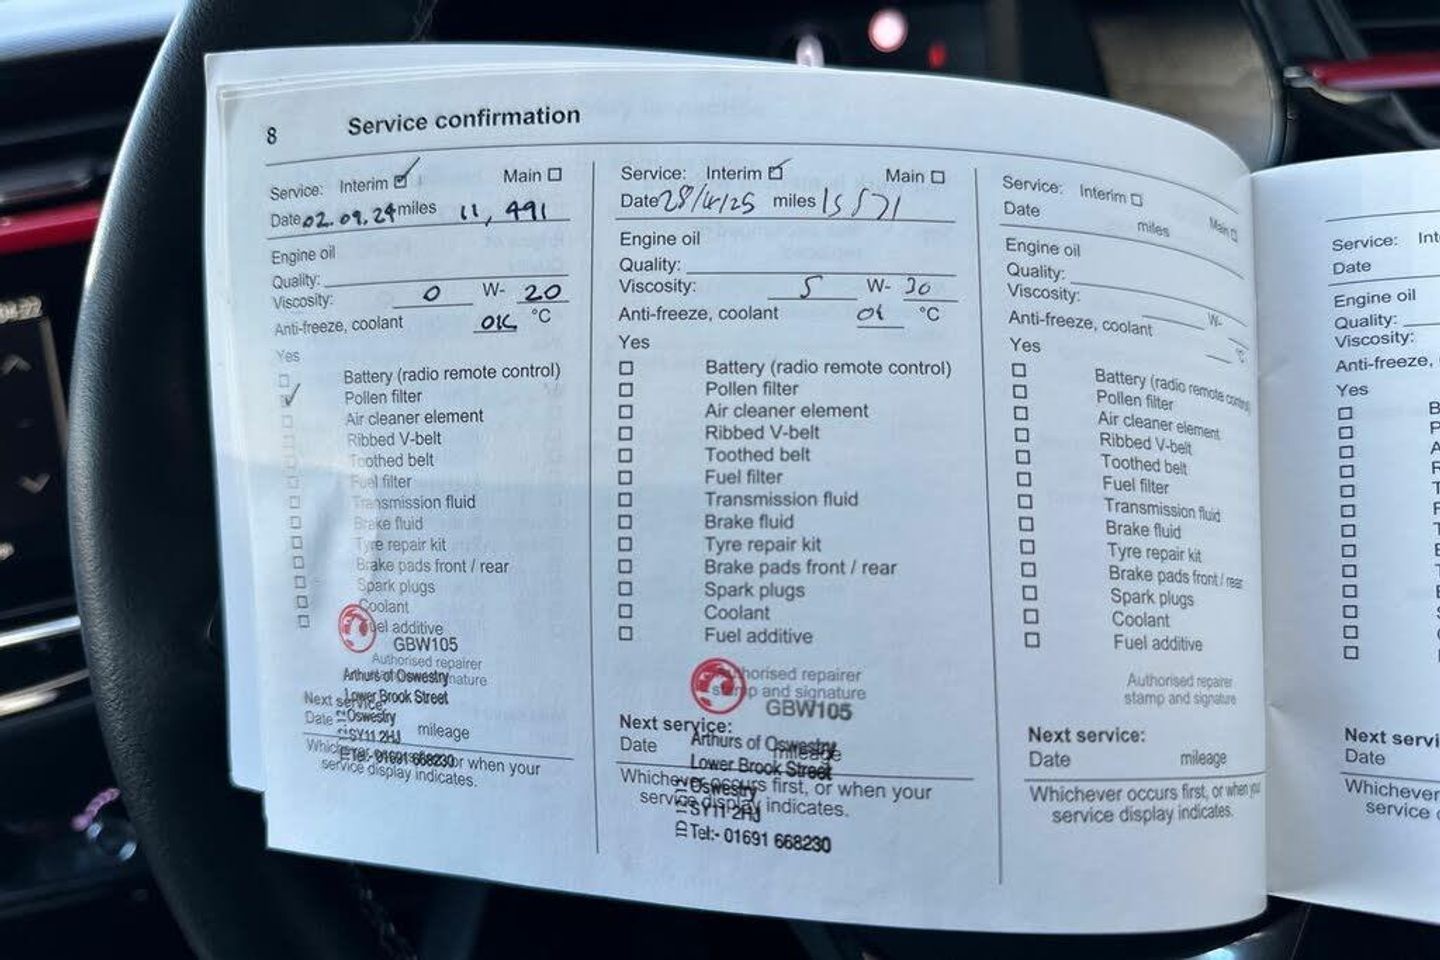 8 Service confirmation
Service: Interim Main
Date 02.09.24 miles 11,491
Engine oil
Quality:
Viscosity: 0 W- 20
Anti-freeze, coolant OK °C
Yes
Battery (radio remote control)
Pollen filter
Air cleaner element
Ribbed V-belt
Toothed belt
Fuel filter
Transmission fluid
Brake fluid
Tyre repair kit
Brake pads front / rear
Spark plugs
Coolant
Fuel additive
GBW105
Authorised repairer
Arthurs of Oswestry
Lower Brook Street
Next service:
Oswestry
Date mileage
SY11 2HJ
Tel:- 01691 668230
Whichever occurs first, or when your
service display indicates.
Service: Interim Main
Date 28/4/25 miles 15571
Engine oil
Quality:
Viscosity: 5 W- 30
Anti-freeze, coolant °C
Yes
Battery (radio remote control)
Pollen filter
Air cleaner element
Ribbed V-belt
Toothed belt
Fuel filter
Transmission fluid
Brake fluid
Tyre repair kit
Brake pads front / rear
Spark plugs
Coolant
Fuel additive
Authorised repairer
stamp and signature
GBW105
Next service:
Arthurs of Oswestry
Date mileage
Lower Brook Street
Whichever occurs first, or when your
Oswestry
service display indicates.
SY11 2HJ
Tel:- 01691 668230
Service: Interim Main
Date miles
Engine oil
Quality:
Viscosity: W-
Anti-freeze, coolant °C
Yes
Battery (radio remote control)
Pollen filter
Air cleaner element
Ribbed V-belt
Toothed belt
Fuel filter
Transmission fluid
Brake fluid
Tyre repair kit
Brake pads front / rear
Spark plugs
Coolant
Fuel additive
Authorised repairer
stamp and signature
Next service:
Date mileage
Whichever occurs first, or when you
service display indicates.
Service: Int
Date
Engine oil
Quality:
Viscosity:
Anti-freeze,
Yes
Next servi
Date
Whichever
service